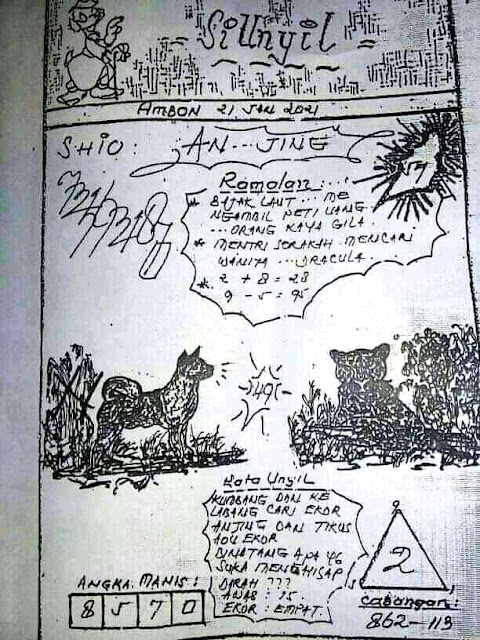 SiUnyil
AMBON 21 JAN 2021
SHIO :
AN...JING
57
Ramalan...
* BAJAK LAUT ... ME
NGAMBIL PETI UANG
... ORANG KAYA GILA.
* MENTRI SERAKAH MENCARI
WANITA ... DRACULA.
* 2 + 8 = 28
9 - 5 = 95
49
Kata Unyil
KUMBANG DAN KE
LABANG CARI EKOR
ANJING DAN TIKUS
ADU EKOR
BINATANG APA YG
SUKA MENGHISAP
DARAH ???
AWAS : 15.
EKOR : EMPAT.
ANGKA MANIS :
8 5 7 0
9
2
5 1
Cabangan :
862 - 113